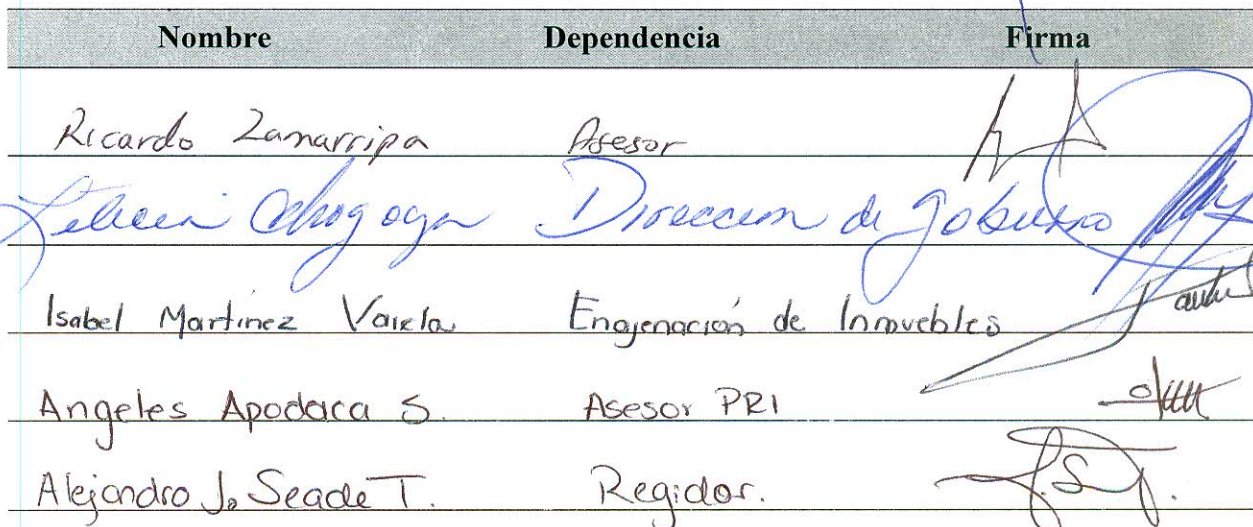 Nombre Dependencia Firma
Ricardo Zamarripa Asesor
Leticia Direccion de Gobierno
Isabel Martinez Varela Enajenación de Inmuebles
Angeles Apodaca S. Asesor PRI
Alejandro J. Seade T. Regidor. J.S.T.